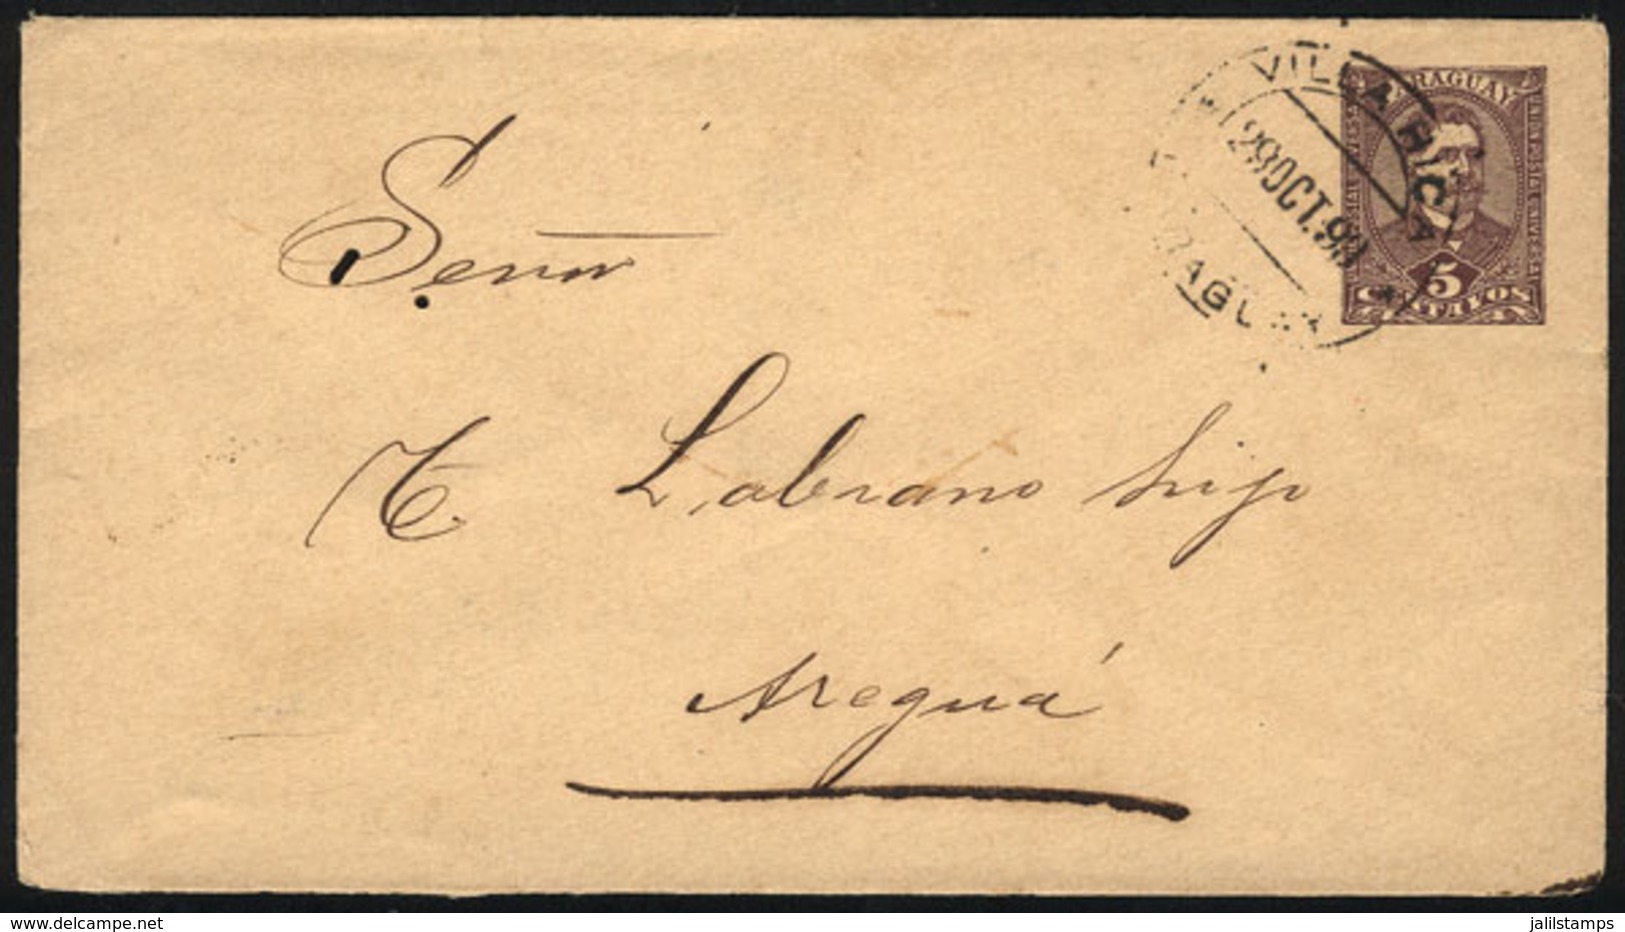 VILLA RICA
29 OCT. 98
PARAGUAY
UNION POSTAL UNIVERSAL
5
CENTAVOS
Señor
E Labrano hijo
Areguá
www.delcampe.net
jalilstamps